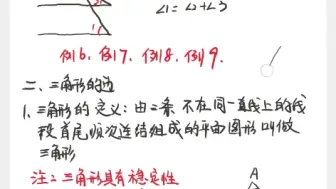 ∠1=∠2+∠3
例16、例17、例18、例19.
二、三角形的边
1、三角形的定义:由三条不在同一直线上的线
段首尾顺次连结组成的平面图形叫做
三角形
注:三角形具有稳定性
A